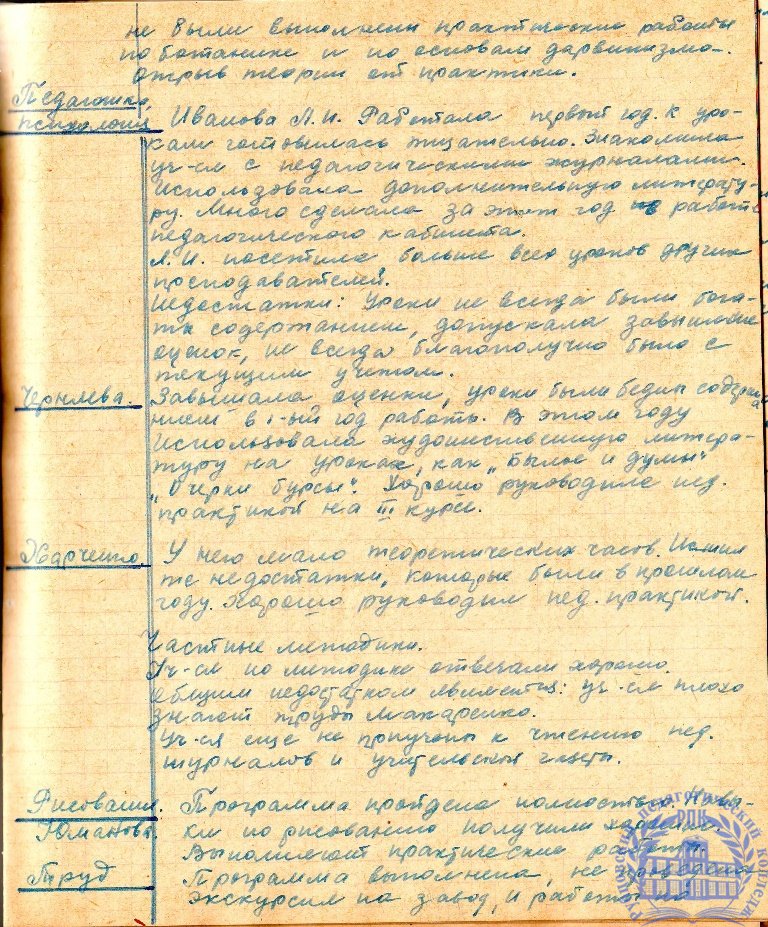 не были выполнены практические работы
по ботанике и по основам дарвинизма.
Отрыв теории от практики.
Педагогика,
психология
Иванова Л.И. Работала первый год. К уро-
кам готовилась тщательно. Знакомила
уч-ся с педагогическими журналами.
Использовала дополнительную литерату-
ру. Много сделала за этот год по работе
педагогического кабинета.
Л.И. посетила больше всех уроков других
преподавателей.
Недостатки: Уроки не всегда были бога-
ты содержанием, допускала завышение
оценок, не всегда благополучно было с
текущим учетом.
Чернлева.
Завышала оценки, уроки были бедны содержа-
нием в 1-ый год работы. В этом году
использовала художественную литера-
туру на уроках, как „Былое и думы"
„Очерки бурсы". Хорошо руководила пед.
практикой на III курсе.
Харченко
У него мало теоретических часов.
те недостатки, которые были в прошлом
году. Хорошо руководил пед. практикой.
Частные методики.
Уч-ся по методике отвечали хорошо.
Общим недостатком является: уч-ся плохо
знают труды Макаренко.
Уч-ся еще не приучены к чтению пед.
журналов и учительской газеты.
Рисование.
Юманова.
Программа пройдена полностью. Навы-
ки по рисованию получили хорошие.
Выполняют практические работы.
Труд
Программа выполнена, не проведены
экскурсии на завод, и работы на
педагогический колледж
РПК